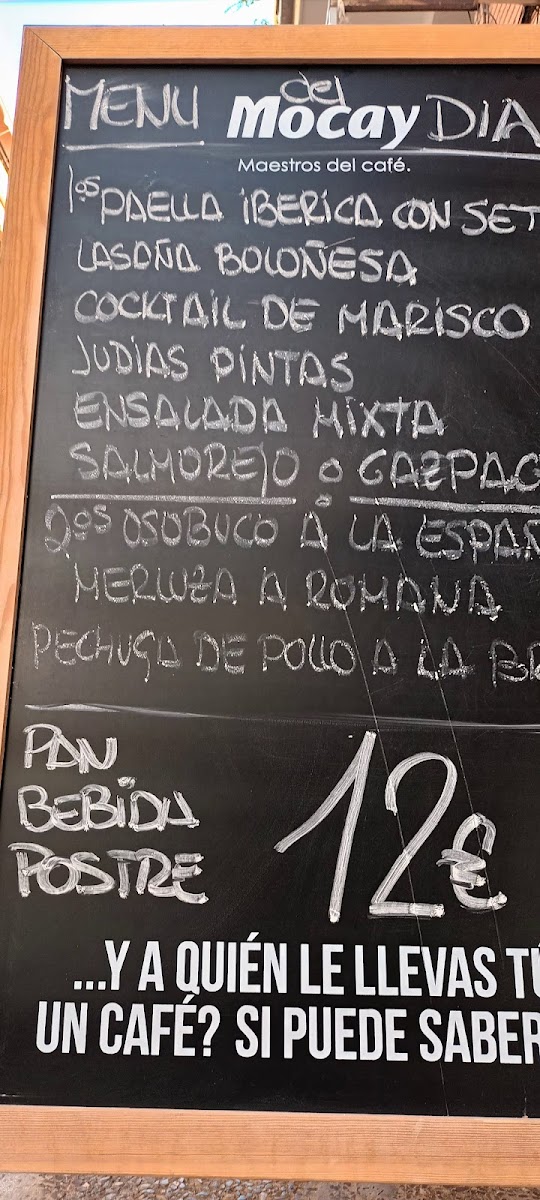 MENU del DIA
Mocay
Maestros del café.
1os PAELLA IBERICA CON SET
LASAÑA BOLOÑESA
COCKTAIL DE MARISCO
JUDIAS PINTAS
ENSALADA MIXTA
SALMOREJO o GAZPAC
2os OSOBUCO A LA ESPAÑ
MERLUZA A ROMANA
PECHUGA DE POLLO A LA BR
PAN
BEBIDA
POSTRE
12€
...Y A QUIÉN LE LLEVAS TÚ
UN CAFÉ? SI PUEDE SABER